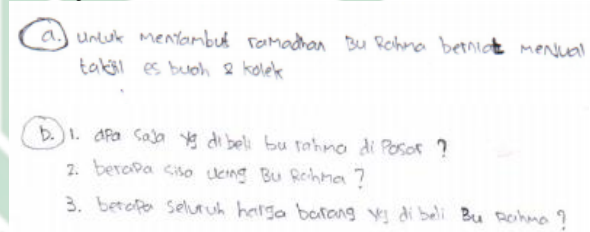 a. untuk menyambut ramadhan Bu Rahma berniat menjual
takjil es buah & kolek
b. 1. apa saja yg dibeli bu rahma di Pasar ?
2. berapa sisa uang Bu Rahma ?
3. berapa seluruh harga barang yg di beli Bu Rahma ?